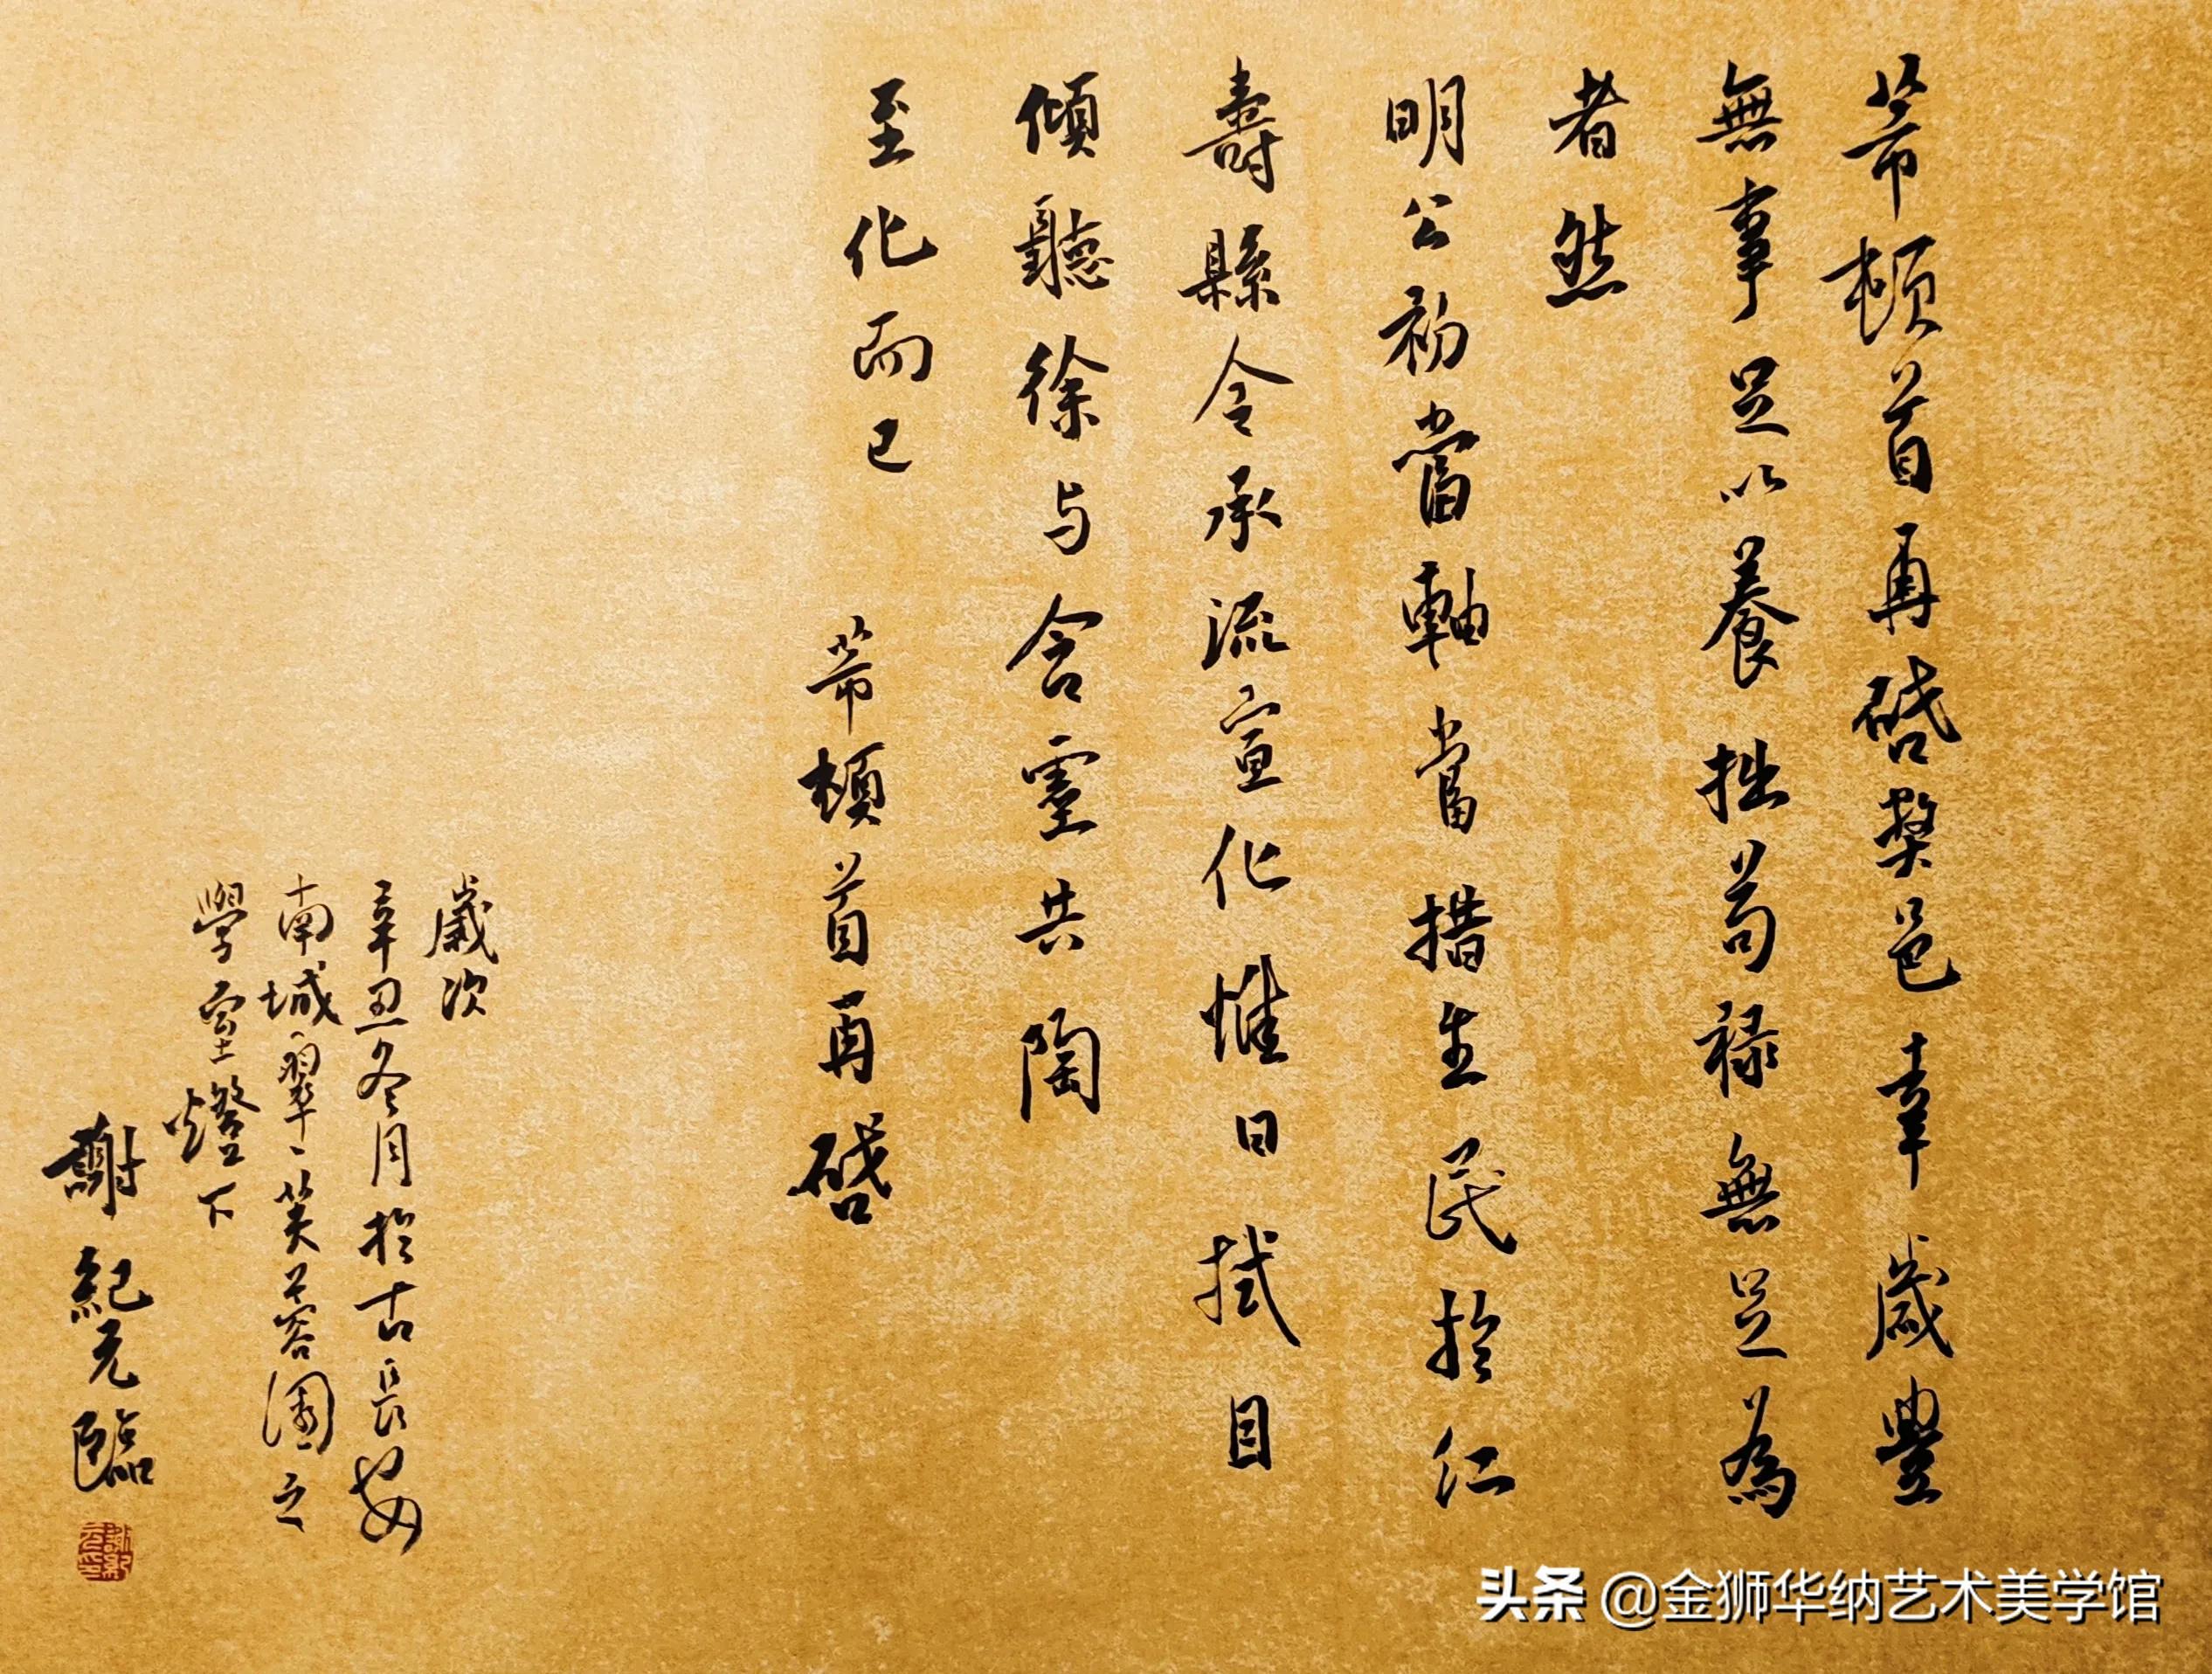 芾頓首再啓獘邑幸歲豐
無事足以養拙苟禄無足為
者然
明公初當軸當措生民於仁
壽縣令承流宣化惟日拭目
傾聽徐与含靈共陶
至化而已　芾頓首再啓
歲次
辛丑冬月於古長安
南城翠、芙蓉園之
學堂燈下
謝紀元臨
头条 @金狮华纳艺术美学馆